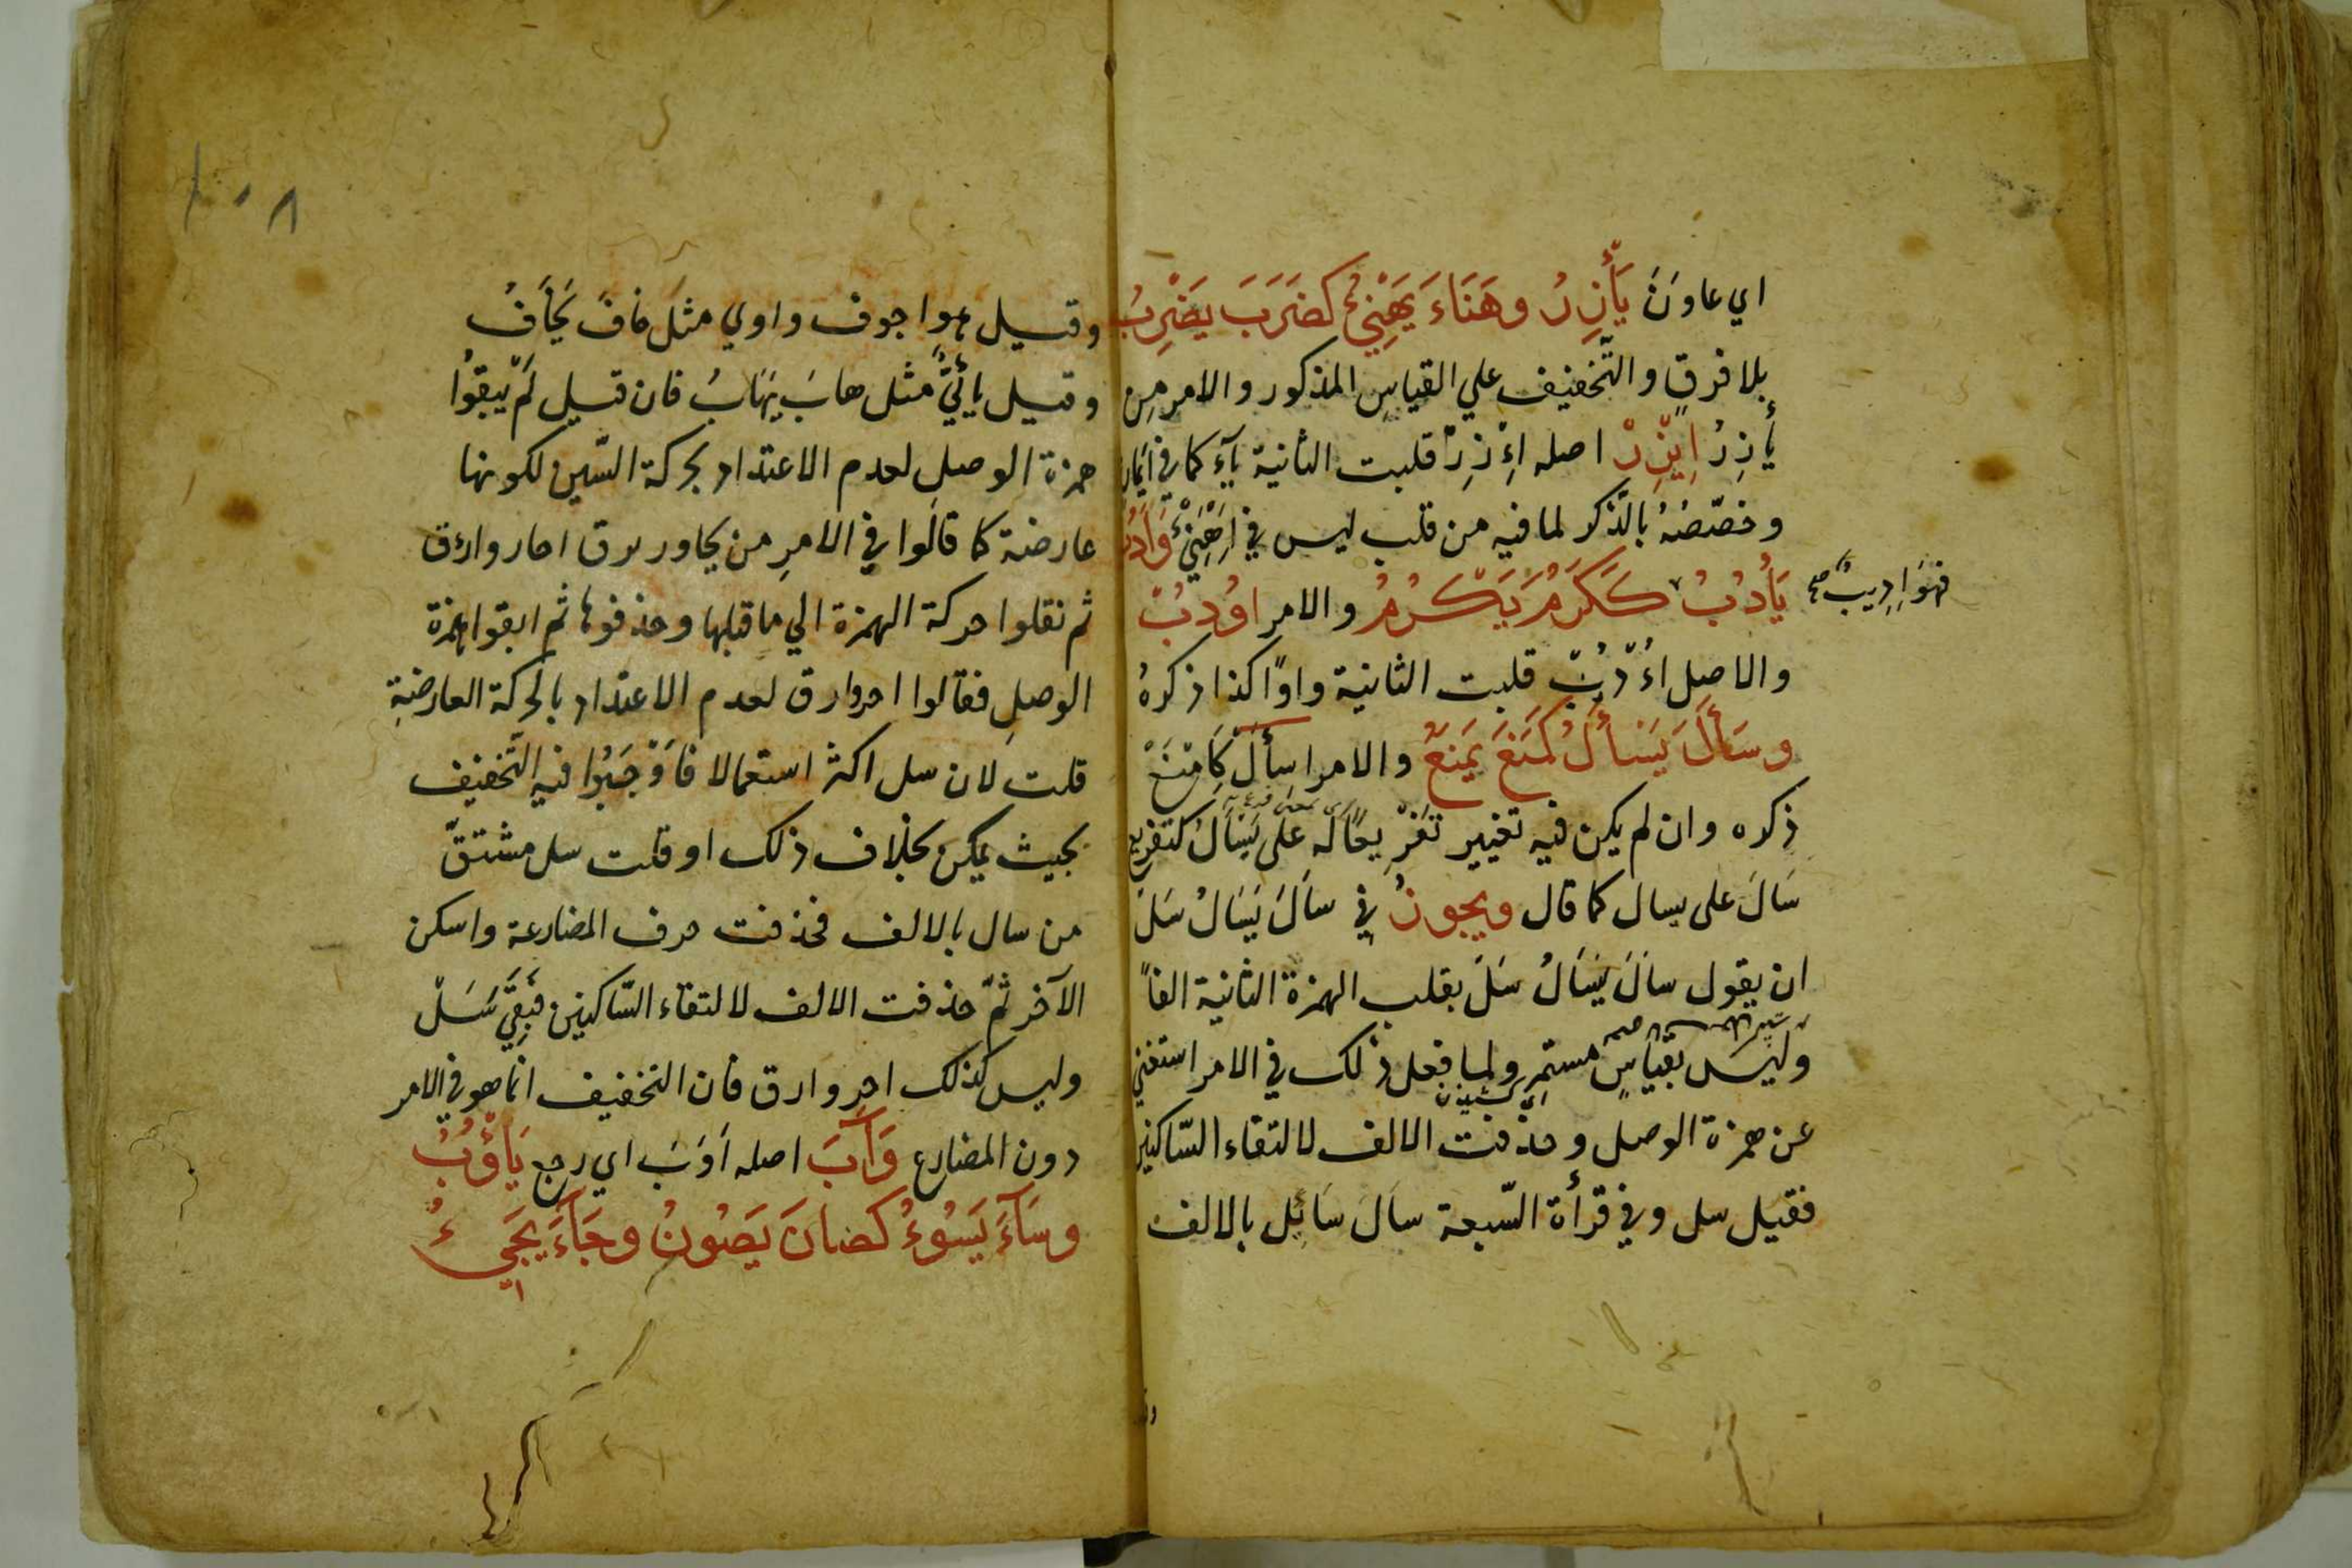 اي عاونَ يَأْزِرُ وهَنَاءَ يَهْنِئُ كضَرَبَ يَضْرِبُ
بلا فرقٍ والتّخفيف علي القياسِ المذكور والامر مِن
يأزِرُ اِيْزِرْ اصله اِءْزِرْ قلبت الثانية ياءً كما في ايمان
وخصّصَهُ بالذّكر لما فيه من قلب ليس في اِهْنِئْ وَاَدُبَ
يَأدُبُ كَكَرُمَ يَكْرُمُ والامر اوُدُبْ
فهوَ اَدِيبٌ صح
والاصل اءُدُبْ قلبت الثانية واوًا كذا ذكرهُ
وسَأَلَ يَسْأَلُ كَمَنَعَ يَمْنَعُ والامر اسأَلْ كَامْنَعْ
ذكره وان لم يكن فيه تغيير تفْرِيعًا لَهُ علَى يَسْأَلُ كتفريع
سَالَ على يسال كما قال ويجوزُ في سَأَلَ يَسْأَلُ سَلْ
ان يقول سَالَ يَسَالُ سَلْ بقلب الهمزة الثانية الفاً
وليسَ بقياسٍ مستمرٍ ولما فعل ذلك في الامر استغني
عن همزة الوصل وحذفت الالف لالتقاء السّاكنين
فقيل سل وفي قرأة السّبعة سالَ سَائِل بالالف
وقيل هو اجوف واوي مثل خافَ يَخَافُ
وقيل يائيٌّ مثل هابَ يَهَابُ فان قيل لَمْ يبقُوا
همزة الوصلِ لعدم الاعتداد بحركة السّين لكونها
عارضة كما قالوا في الامرِ من يجاور يرق اجار وارؤق
ثم نقلوا حركة الهمزة الي ما قبلها وحذفوها ثم ابقوا همزة
الوصلِ فقالوا اجر وارق لعدم الاعتداد بالحركة العارضة
قلت لان سل اكثر استعمالا فَاَوْجَبُوا فيهِ التّخفيف
بحيث يمكن بخلاف ذلك او قلت سل مشتقّ
من سال بالالف فحذفت حرف المضارعة واسكن
الآخر ثمّ حذفت الالف لالتقاء السّاكنين فبَقِيَ سَلْ
وليس كذلك اجر وارق فان التخفيف انما هو في الامر
دون المضارع وَآبَ اصله اَوَبَ اي رجع يَاؤُبُ
وسَآءَ يَسُوْءُ كصَانَ يَصُونُ وجَآءَ يَجِيءُ